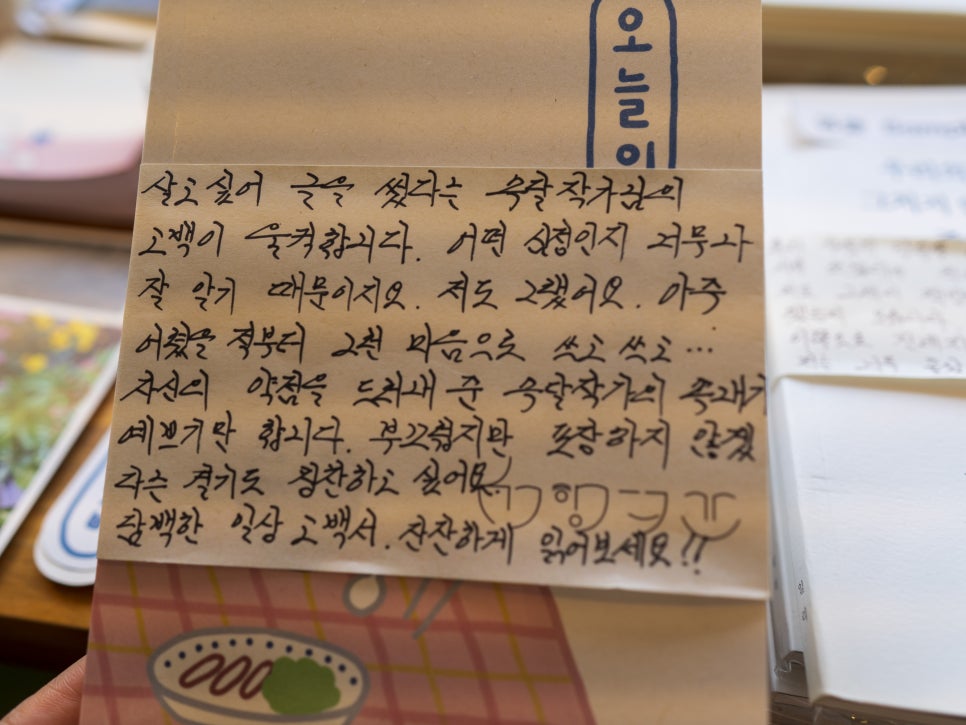 오늘
살고 싶어 글을 썼다는
고백이 울컥합니다. 어떤 심정인지 너무나
잘 알기 때문이지요. 저도 그랬어요. 아주
어렸을 적부터 그런 마음으로 쓰고 쓰고...
자신의 약점을 드러내 준 속내가
예쁘기만 합니다. 부끄럽지만 포장하지 않겠
다는 결기도 칭찬하고 싶어요
담백한 일상 고백서. 잔잔하게 읽어보세요!!